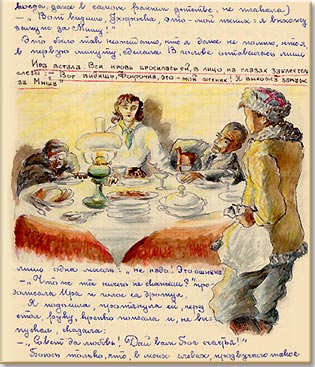 никогда, даже в самом раннем детстве, не плакала)
— „Вот видишь, Фюрочка, это - мой жених: я выхожу
замуж за Мишу!"
Это было так неожиданно, что я даже не помню, что я
в первую минуту сделала. В голове оставалась лишь
Ира встала. Вся кровь бросилась ей в лицо, на глазах
слезы: — "Вот видишь, Фюрочка, это-мой жених! Я выхожу замуж
за Мишу"
лишь одна мысль: „не надо! Это ошибка!
— „Что же ты ничего не скажешь?" про-
Ира и голос ее дрогнул.
Я подошла, протянула ей, через
стол, руку, крепко пожала и, не вы-
пуская, сказала:
— „Совет да любовь! Дай вам Бог счастья!"
Боюсь только, что в моих словах, прозвучало такое